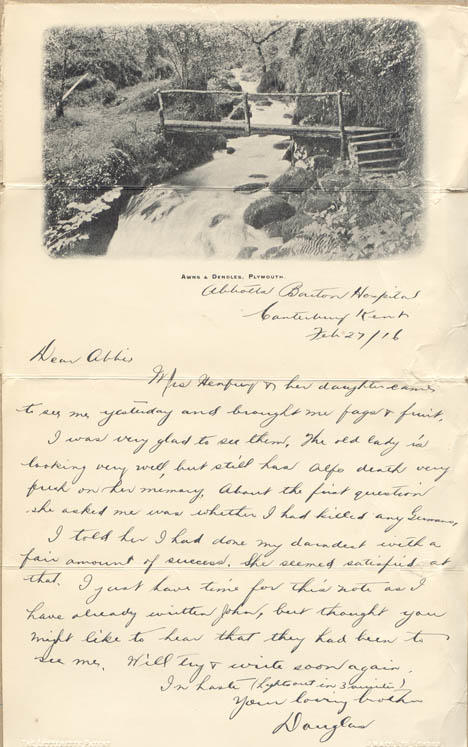 AWNS & DENDLES, PLYMOUTH.
Abbotts Barton Hospital
Canterbury Kent
Feb 27/16
Dear Abbie
Mrs & her daughter came
to see me yesterday and brought me fags & fruit.
I was very glad to see them, The old lady is
looking very well, but still has Alfs death very
fresh on her memory. About the first question
she asked me was whether I had killed any Germans,
I told her I had done my darndest with a
fair amount of success. She seemed satisfied at
that. I just have time for this note as I
have already written John, but thought you
might like to hear that they had been to
see me. Will try & write soon again.
In haste (Lights out in 3 minutes)
Your loving brother
Douglas